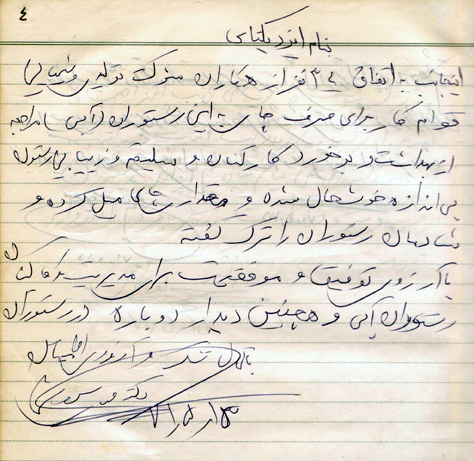 ٤
بنام ایزد یکتای
اینجانب به اتفاق ۳۰ نفر از همکاران شرکت تولیدی و شیمیایی
قوام کار برای صرف چای به این رستوران آبی مراجعه
از بهداشت و برخورد کارکنان و سلیقه و زیبایی رستوران
بی اندازه خوشحال شده و مقداری چای میل کرده و
شادمان رستوران را ترک گفته
با آرزوی توفیق و موفقیت برای مدیریت و کارکنان
رستوران آبی و همچنین دیدار دوباره در رستوران
با کمال تشکر و آرزوی